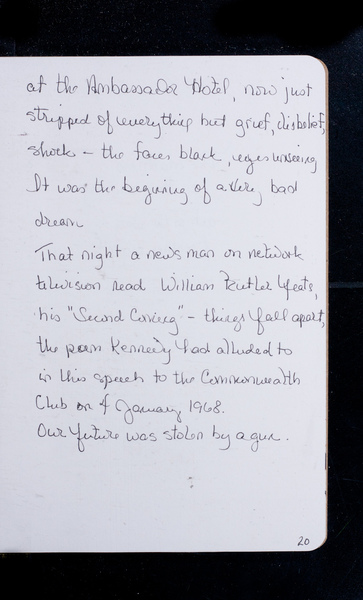 at the Ambassador Hotel, now just
stripped of everything but grief, disbelief,
shock – the faces blank, eyes unseeing
It was the beginning of a very bad
dream
That night a news man on network
television read William Butler Yeats,
his "Second Coming" – things fall apart,
the poem Kennedy had alluded to
in his speech to the Commonwealth
Club on 4 January 1968.
Our future was stolen by a gun.
20